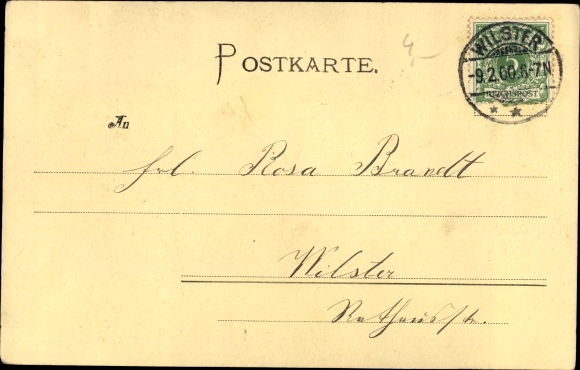 4,-
WILSTER
POSTKARTE.
5
-9.2.00.6-7N
REICHSPOST
* *
An
Frl. Rosa Brandt
Wilster
Rathausstr.